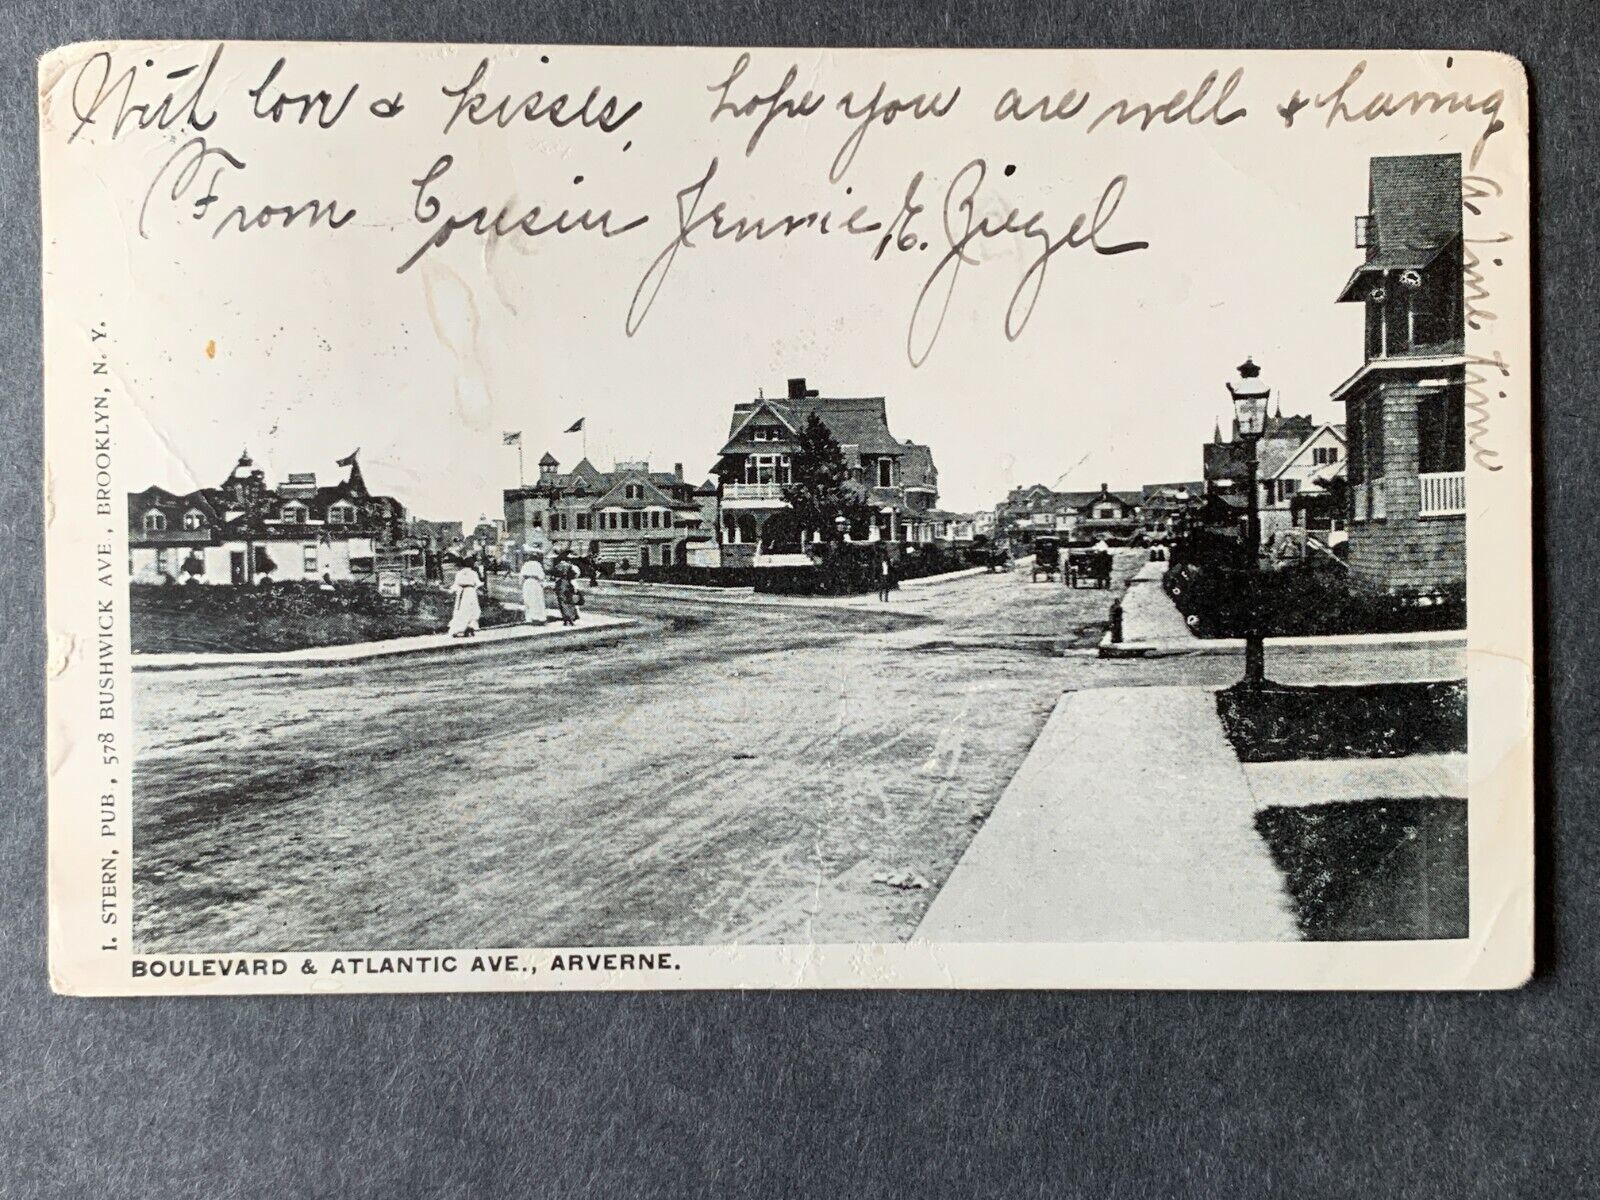 With love & kisses, hope you are well & having
a fine time
From Cousin Jennie E. Ziegel
I. STERN, PUB., 578 BUSHWICK AVE., BROOKLYN, N. Y.
BOULEVARD & ATLANTIC AVE., ARVERNE.